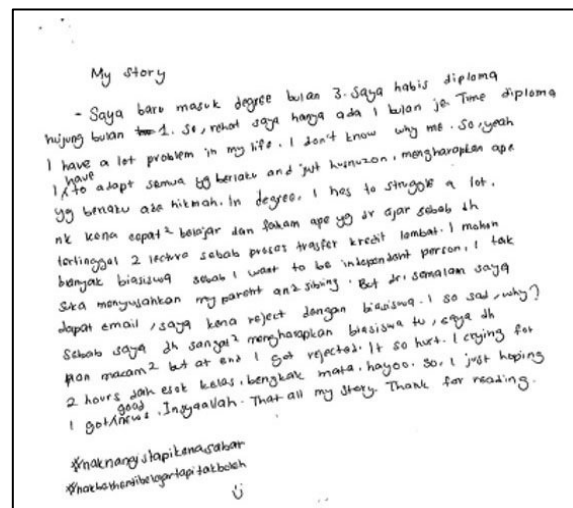 My story
- Saya baru masuk degree bulan 3. Saya habis diploma
hujung bulan 1. So, rehat saya hanya ada 1 bulan je. Time diploma
I have a lot problem in my life. I don't know why me. So, yeah
I have to adapt semua yg berlaku and just husnuzon, mengharapkan ape
yg berlaku ada hikmah. In degree, I has to struggle a lot,
nk kena cepat² belajar dan faham ape yg dr ajar sebab dh
tertinggal 2 lecture sebab proses trasfer kredit lambat. I mohon
banyak biasiswa sebab I want to be independent person, I tak
suka menyusahkan my parent and sibling. But dri semalam saya
dapat email, saya kena reject dengan biasiswa. I so sad, why?
Sebab saya dh sangat² mengharapkan biasiswa tu, saya dh
plan macam² but at end I got rejected. It so hurt. I crying for
2 hours dah esok kelas, bengkak mata, hayoo. So, I just hoping
I got good news. Insyaallah. That all my story. Thank for reading.
#naknangistapikenasabar
#nakberhentibelajartapitakboleh